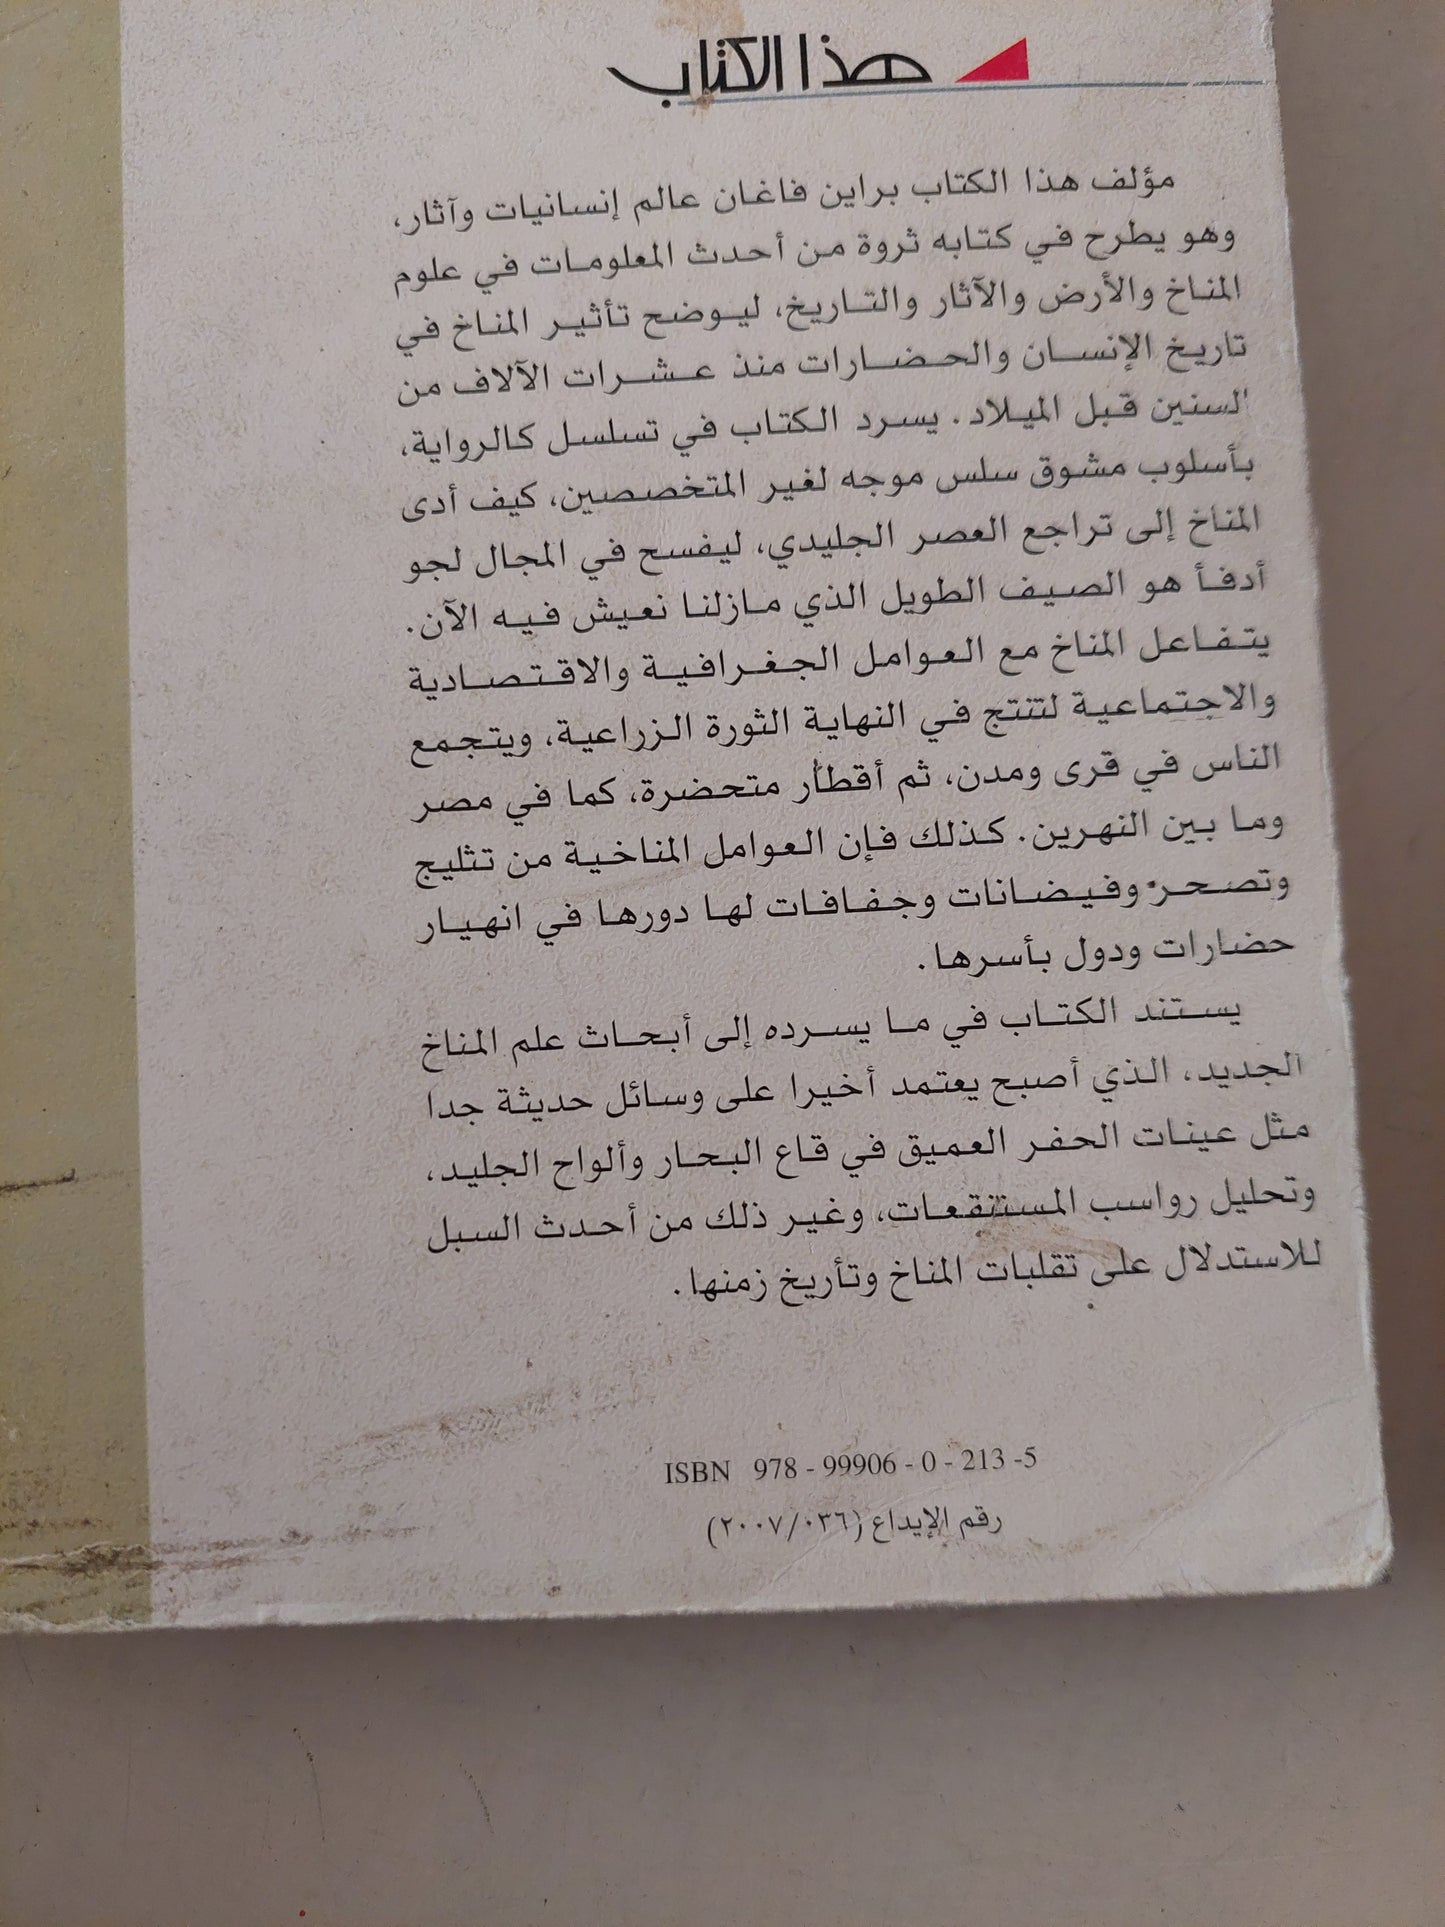 هذا الكتاب
مؤلف هذا الكتاب براين فاغان عالم إنسانيات وآثار،
وهو يطرح في كتابه ثروة من أحدث المعلومات في علوم
المناخ والأرض والآثار والتاريخ، ليوضح تأثير المناخ في
تاريخ الإنسان والحضارات منذ عشرات الآلاف من
السنين قبل الميلاد. يسرد الكتاب في تسلسل كالرواية،
بأسلوب مشوق سلس موجه لغير المتخصصين، كيف أدى
المناخ إلى تراجع العصر الجليدي، ليفسح في المجال لجو
أدفأ هو الصيف الطويل الذي مازلنا نعيش فيه الآن.
يتفاعل المناخ مع العوامل الجغرافية والاقتصادية
والاجتماعية لتنتج في النهاية الثورة الزراعية، ويتجمع
الناس في قرى ومدن، ثم أقطار متحضرة، كما في مصر
وما بين النهرين. كذلك فإن العوامل المناخية من تثليج
وتصحر وفيضانات وجفافات لها دورها في انهيار
حضارات ودول بأسرها.
يستند الكتاب في ما يسرده إلى أبحاث علم المناخ
الجديد، الذي أصبح يعتمد أخيرا على وسائل حديثة جدا
مثل عينات الحفر العميق في قاع البحار وألواح الجليد،
وتحليل رواسب المستنقعات، وغير ذلك من أحدث السبل
للاستدلال على تقلبات المناخ وتأريخ زمنها.
ISBN 978 - 99906 - 0 - 213 -5
رقم الإيداع (٢٠٠٧/٠٣٦)